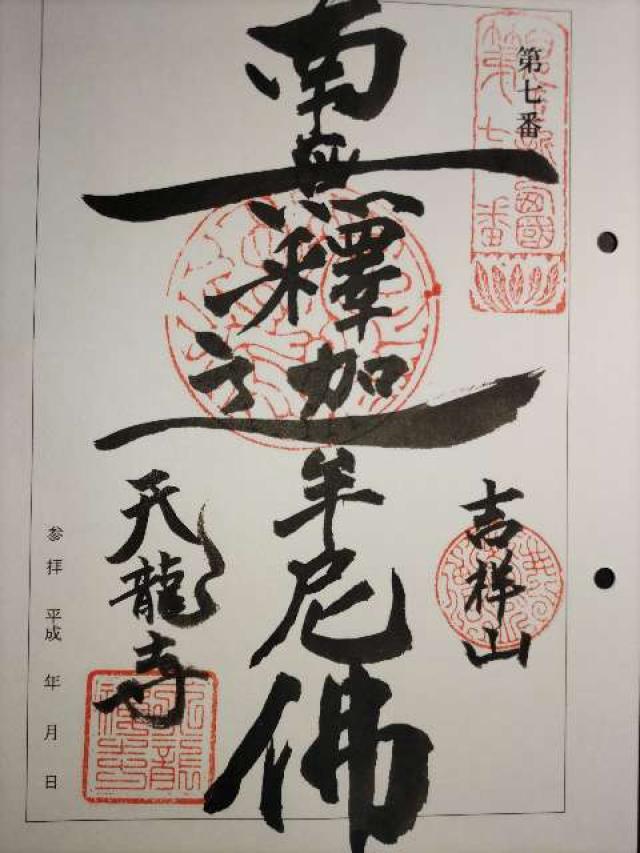 第七番
第七番
吉祥山
南無釋迦牟尼佛
天龍寺
参拝 平成 年 月 日